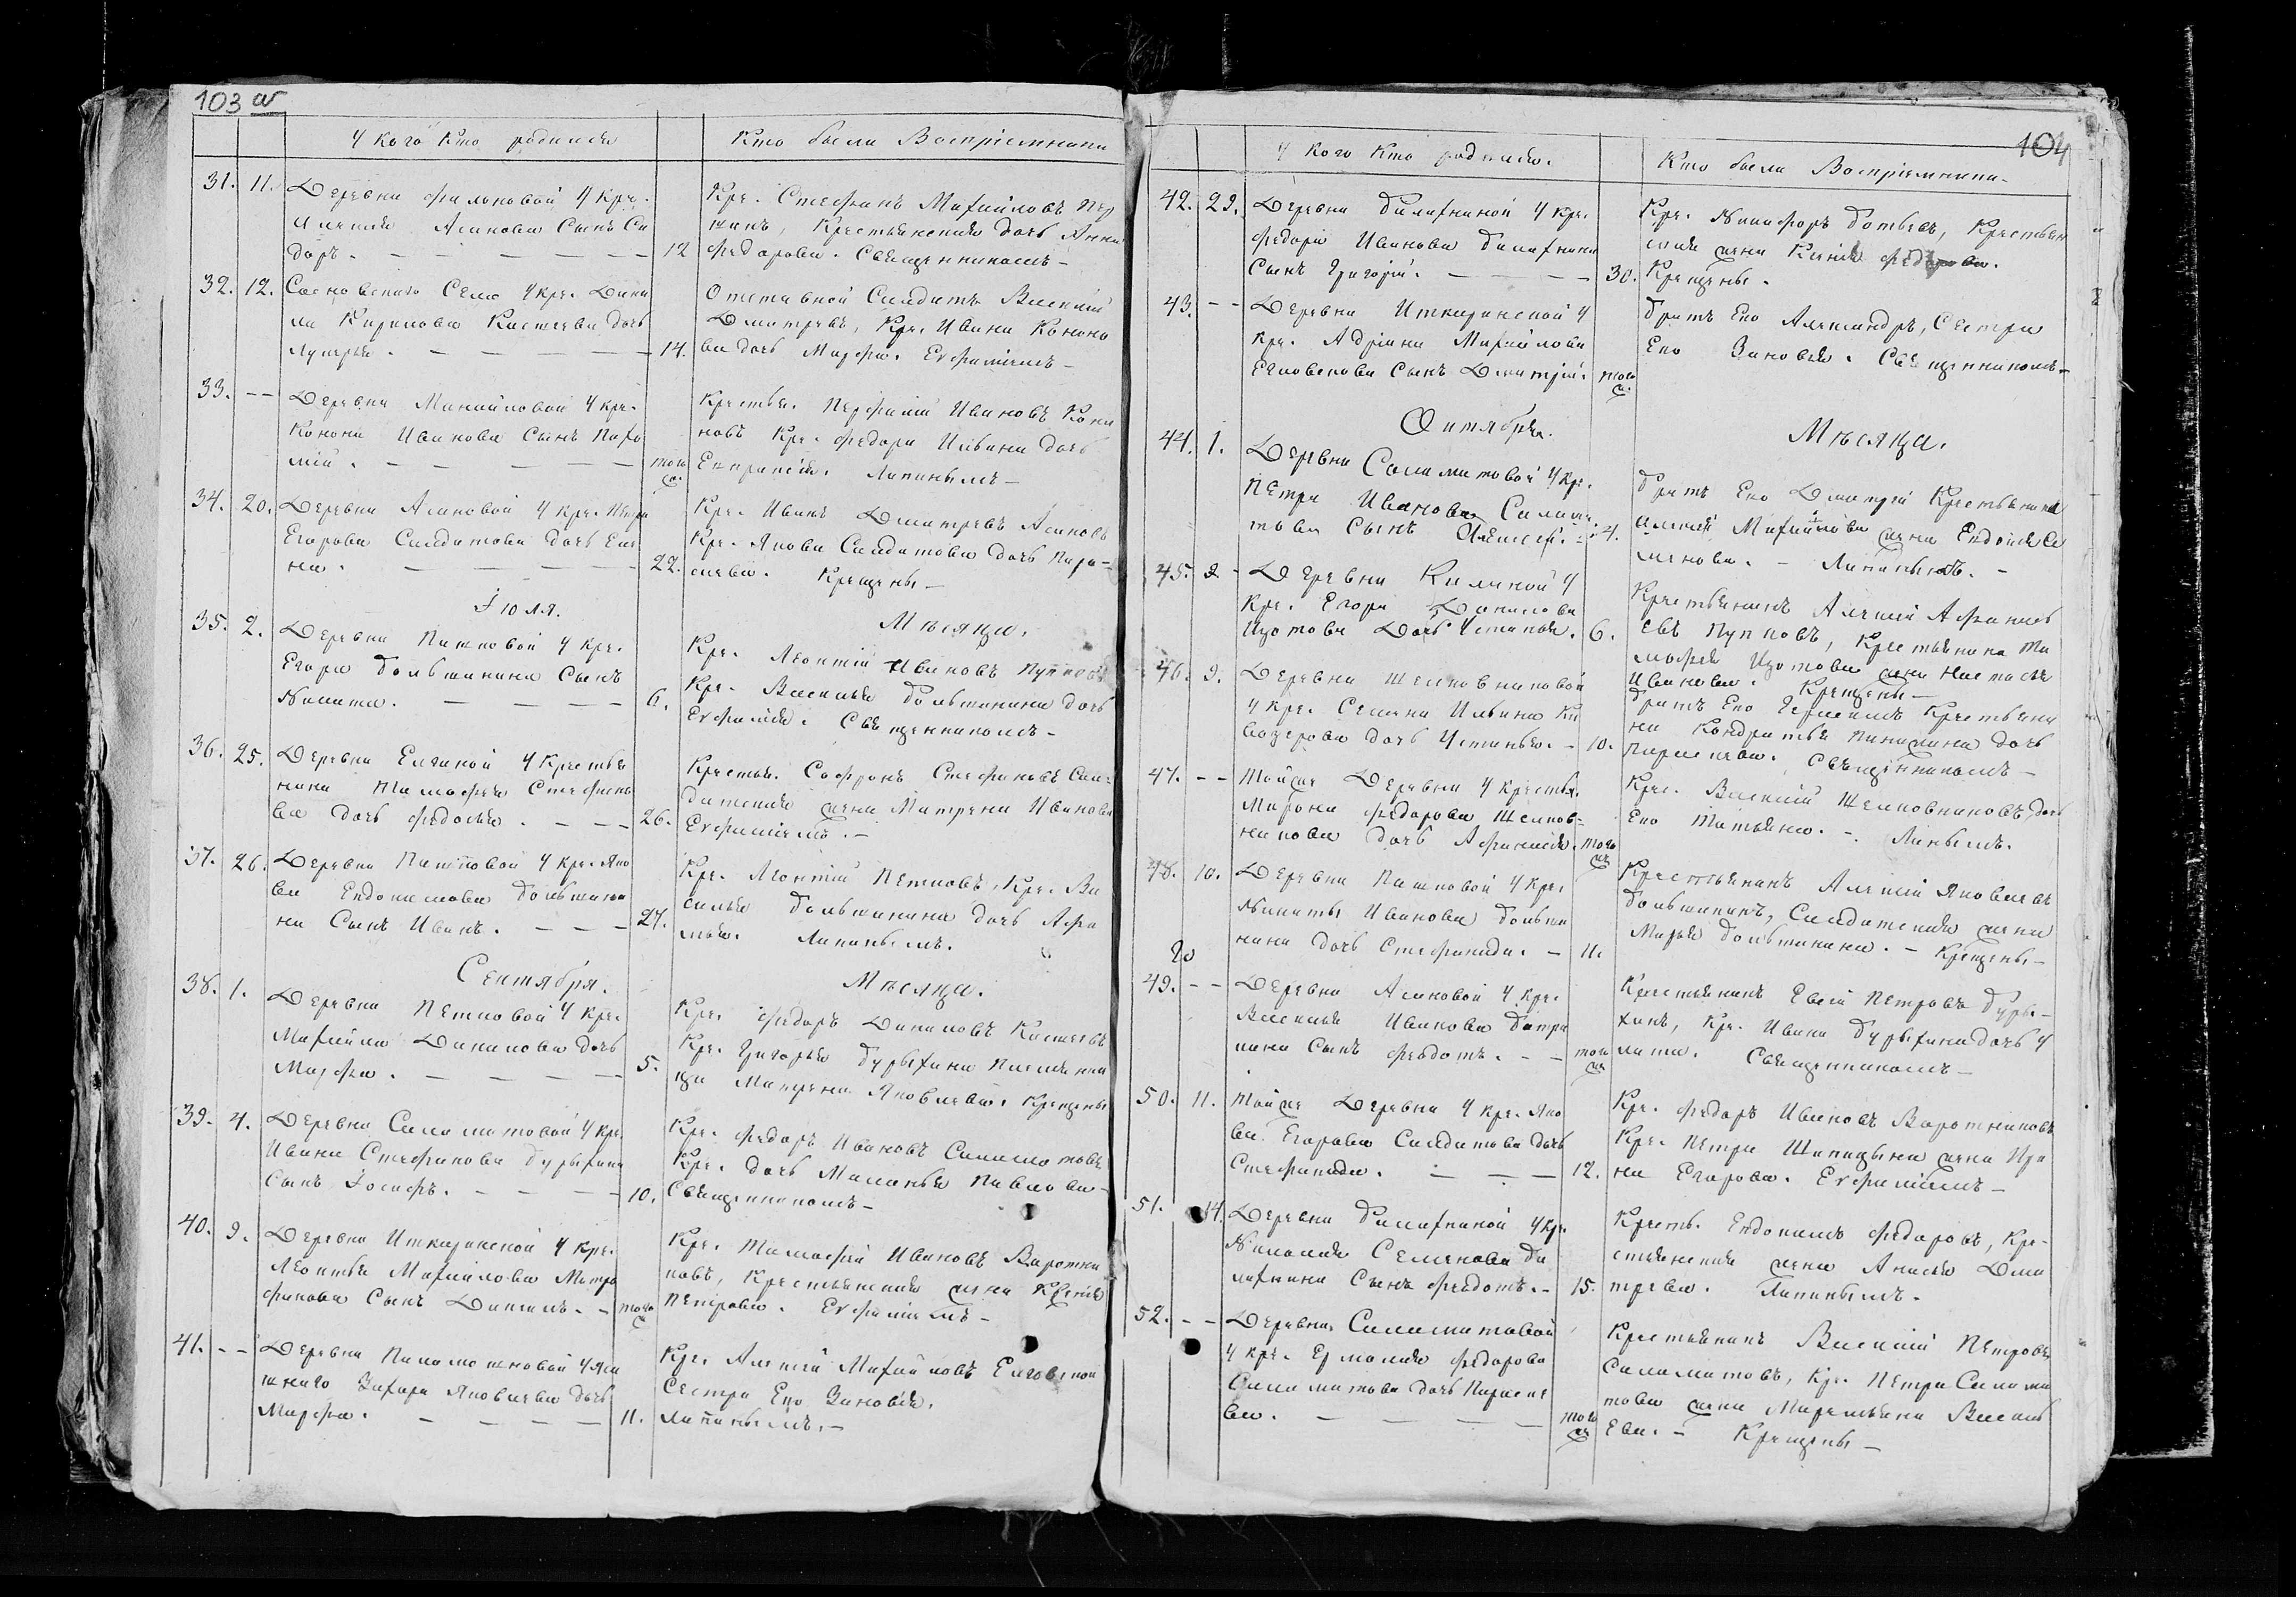 103 об
У кого кто родился
Кто были Воспріемники
31. 11. Деревни Фильковой у кре.
Алексѣя Асанова Сынъ Си
доръ. — — — — — 12
Кре. Стефанъ Михайловъ Пер
шинъ, Крестьянская дочь Анна
Федорова. Священникомъ —
32. 12. Сосновскаго Села у кре. Дани
ла Кирилова Костева дочь
Лукерья. — — — — — 14.
Отставной Солдатъ Василій
Дмитревъ, Кре. Ивана Конона
ва дочь Марфа. Ефимiемъ —
33. — — Деревни Михайловой у кре.
Конона Иванова Сынъ Пахо
мій. — — — — — того
Крестья. Перфилій Ивановъ Коно
новъ Кре. Федора Ильина дочь
Евпраксія. Липинымъ —
34. 20. Деревни Асановой у кре. Петра
Егорова Солдатова дочь Еле
на. — — — — — 22.
Кре. Иванъ Дмитревъ Асановъ
Кре. Якова Солдатова дочь Пара-
скева. Крещены —
Іюля.
Мѣсяца.
35. 2. Деревни Пашковой у кре.
Егора Большанина Сынъ
Никита. — — — — 6.
Кре. Леонтій Ивановъ Пупковъ
Кре. Василья Большанина дочь
Ефимія. Священникомъ —
36. 25. Деревни Елгиной у Крестья
нина Тимофея Стефано
ва дочь Федосья. — — — 26.
Крестья. Софронъ Стефановъ Сол-
датская жена Матрена Иванова
Ефимiемъ. —
37. 26. Деревни Пашковой у кре. Яко
ва Евдокимова Большани
на Сынъ Иванъ. — — — 27.
Кре. Леонтій Петровъ, Кре. Ва
силья Большанина дочь Афи
мья. Липинымъ.
Сентября.
Мѣсяца.
38. 1. Деревни Петковой у кре.
Михайла Данилова дочь
Марфа. — — — — — 5.
Кре. Федоръ Даниловъ Костевъ
Кре. Григорья Бурыхина Племянни
ца Матрена Яковлева. Крещены
39. 4. Деревни Саламатовой у кре.
Ивана Стефанова Бурыхина
Сынъ Іосифъ. — — — — 10.
Кре. Федоръ Ивановъ Саламатовъ
Кре. дочь Маланья Павлова —
Священникомъ —
40. 9. Деревни Иткаринской у кре.
Леонтья Михайлова Митро
фанова Сынъ Данилъ. — того
Кре. Тимофей Ивановъ Воротни
ковъ, Крестьянская жена Ксенія
Петрова. Ефимiемъ —
41. — — Деревни Паломошновой у Ям
шнаго Захара Яковлева дочь
Марфа. — — — — 11.
Кре. Алексѣй Михайловъ
Сестра Его Зиновья.
Липинымъ. —
104
У кого кто родился.
Кто были Воспріемники —
42. 29. Деревни Балахниной у кре.
Федора Иванова Балахнина
Сынъ Григорій. — — — 30.
Кре. Никифоръ Ботьевъ, Крестьян
ская жена Ксенія Федорова.
Крещены.
43. — — Деревни Иткаринской у
кре. Адріана Михайлова
Елговскова Сынъ Дмитрій. того
Братъ Его Александръ, Сестра
Его Зиновья. Священникомъ —
Октября.
Мѣсяца.
44. 1. Деревни Саламатовой у кр.
Петра Иванова Салама
това Сынъ Алексѣй. 4.
Братъ Его Дмитрій Крестьянина
Алексѣй Михайлова жена Евдокія Се
менова. — Липинымъ. —
45. 2 — Деревни Килиной у
кре. Егора Данилова
Изотова дочь Устинья. 6.
Крестьянинъ Алексѣй Афанась
евъ Пупковъ, Крестьянина Ти
мофея Изотова жена Настасья
Иванова. Крещены —
46. 9. Деревни Шелковниковой
у кре. Семена Ильина Ка
возерова дочь Устинья. — 10.
Братъ Его Герасимъ Крестьяни
на Кондратья Пинигина дочь
Парасковья. Священникомъ —
47. — — Той же Деревни у Крестья.
Мирона Федорова Шелков-
никова дочь Афанасія. того
Кре. Василій Шелковниковъ, дочь
Его Татьяна. — Липинымъ.
48. 10. Деревни Пашковой у кре.
Никиты Иванова Больша
нина дочь Стефанида. — 11.
Крестьянинъ Алексѣй Яковлевъ
Большанинъ, Солдатская жена
Марья Большанина. — Крещены —
20
49. — — Деревни Асановой у кре.
Василья Иванова Батра
кова Сынъ Федотъ. — — того
Крестьянинъ Евсѣй Петровъ Буры-
хинъ, Кре. Ивана Бурыхина дочь У
лита. Священникомъ —
50. 11. Той же Деревни у кре. Яко
ва Егорова Солдатова дочь
Стефанида. — — — 12.
Кре. Федоръ Ивановъ Воротниковъ
Кре. Петра Шипицына жена Ири
на Егорова. Ефимiемъ —
51. 14. Деревни Балахниной у кр.
Николая Семенова Ба
лахнина Сынъ Федотъ. — 15.
Кресть. Евдокимъ Федоровъ, Кре-
стьянская жена Анисья Дми
трева. Липинымъ.
52. — — Деревни Саламатовой
у кре. Ермолая Федорова
Саламатова дочь Параске
ва. — — — — того
Крестьянинъ Василій Петровъ
Саламатовъ, Кр. Петра Салама
това жена Маремьяна Василь
ева. — Крещены —